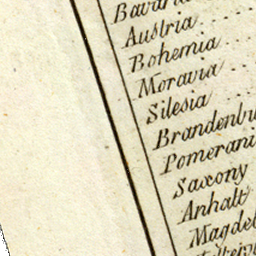 Bavaria
Austria ....
Bohemia ...
Moravia ...
Silesia ....
Brandenbu
Pomerani
Saxony
Anhalt
Magdel